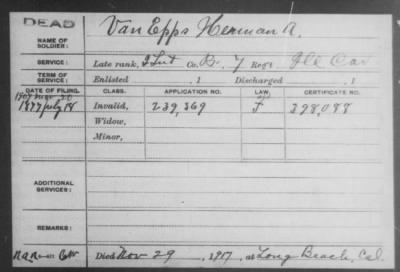 DEAD
NAME OF SOLDIER: Van Epps Herman A.
SERVICE: Late rank, 2 Lut Co. B, 7 Regt. Ill Cav
TERM OF SERVICE: Enlisted , 1 Discharged , 1
DATE OF FILING. CLASS. APPLICATION NO. LAW. CERTIFICATE NO.
1877 July 18 Invalid, 239,369 F 398,088
Widow,
Minor,
ADDITIONAL SERVICES:
REMARKS:
Died Nov 29, 1917, at Long Beach, Cal.